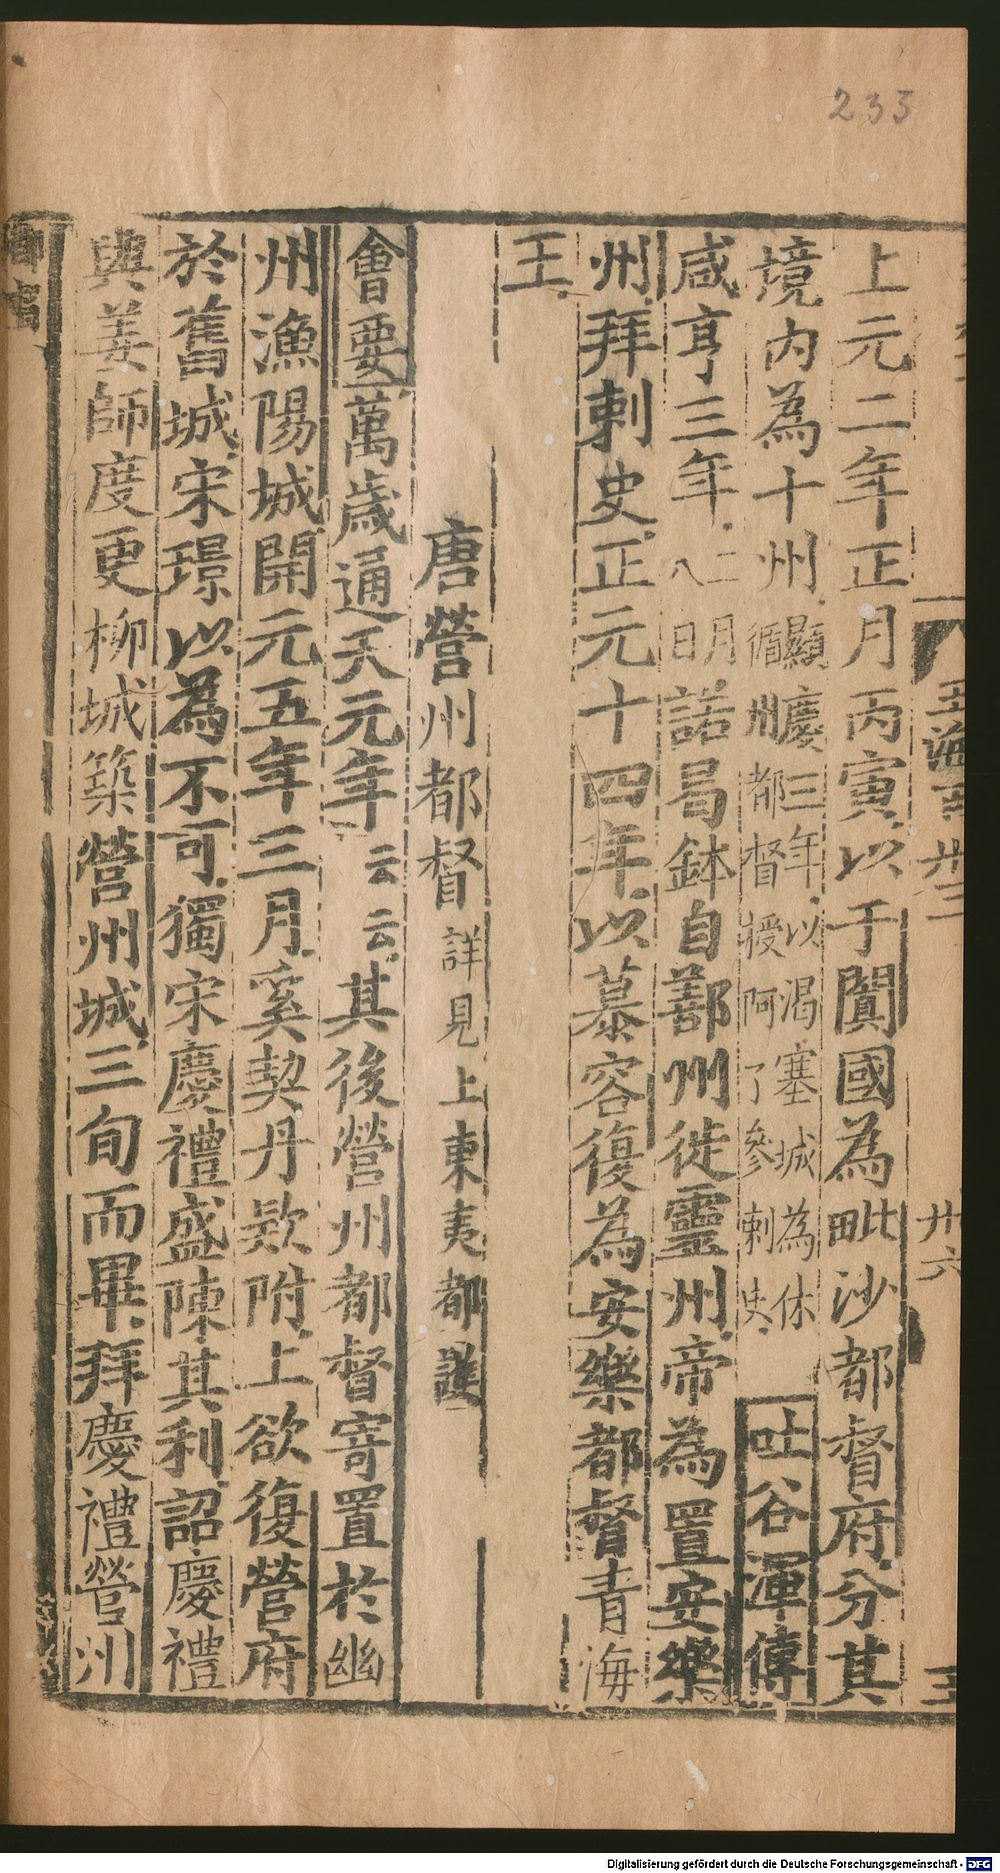 233
玉海百卅三
卅六
上元二年正月丙寅以于闐國為毗沙都督府分其
境内為十州顯慶三年以渴塞城為休循州都督授阿了參刺史吐谷渾傳
咸亨三年二月八日諾曷鉢自鄯州徙靈州帝為置安樂
州拜刺史正元十四年以慕容復為安樂都督青海
王
唐營州都督詳見上東夷都護
會要萬歲通天元年云云其後營州都督寄置於幽
州漁陽城開元五年三月奚契丹欵附上欲復營府
於舊城宋璟以為不可獨宋慶禮盛陳其利詔慶禮
與姜師度更柳城築營州城三旬而畢拜慶禮營州
Digitalisierung gefördert durch die Deutsche Forschungsgemeinschaft - DFG